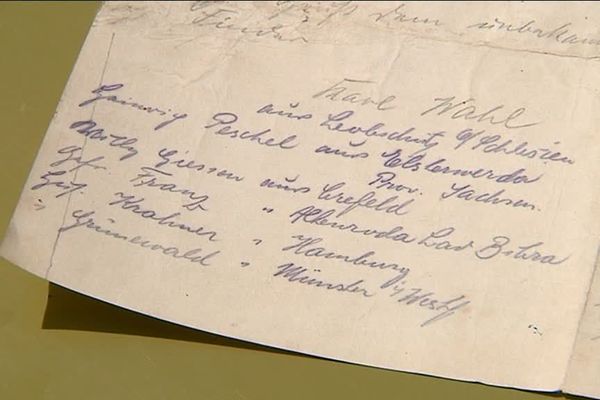 Gruß dem unbekann
Finder
Karl Wahl
aus Leobschütz O/Schlesien
Heinrig Peschel aus Elsterwerda
Prov. Sachsen.
Willy Giessen aus Crefeld
Gefr. Franz " Alberoda Lav Bibra
Gef. Krahmer " Hamburg
" Grünewald " Münster i/Westf